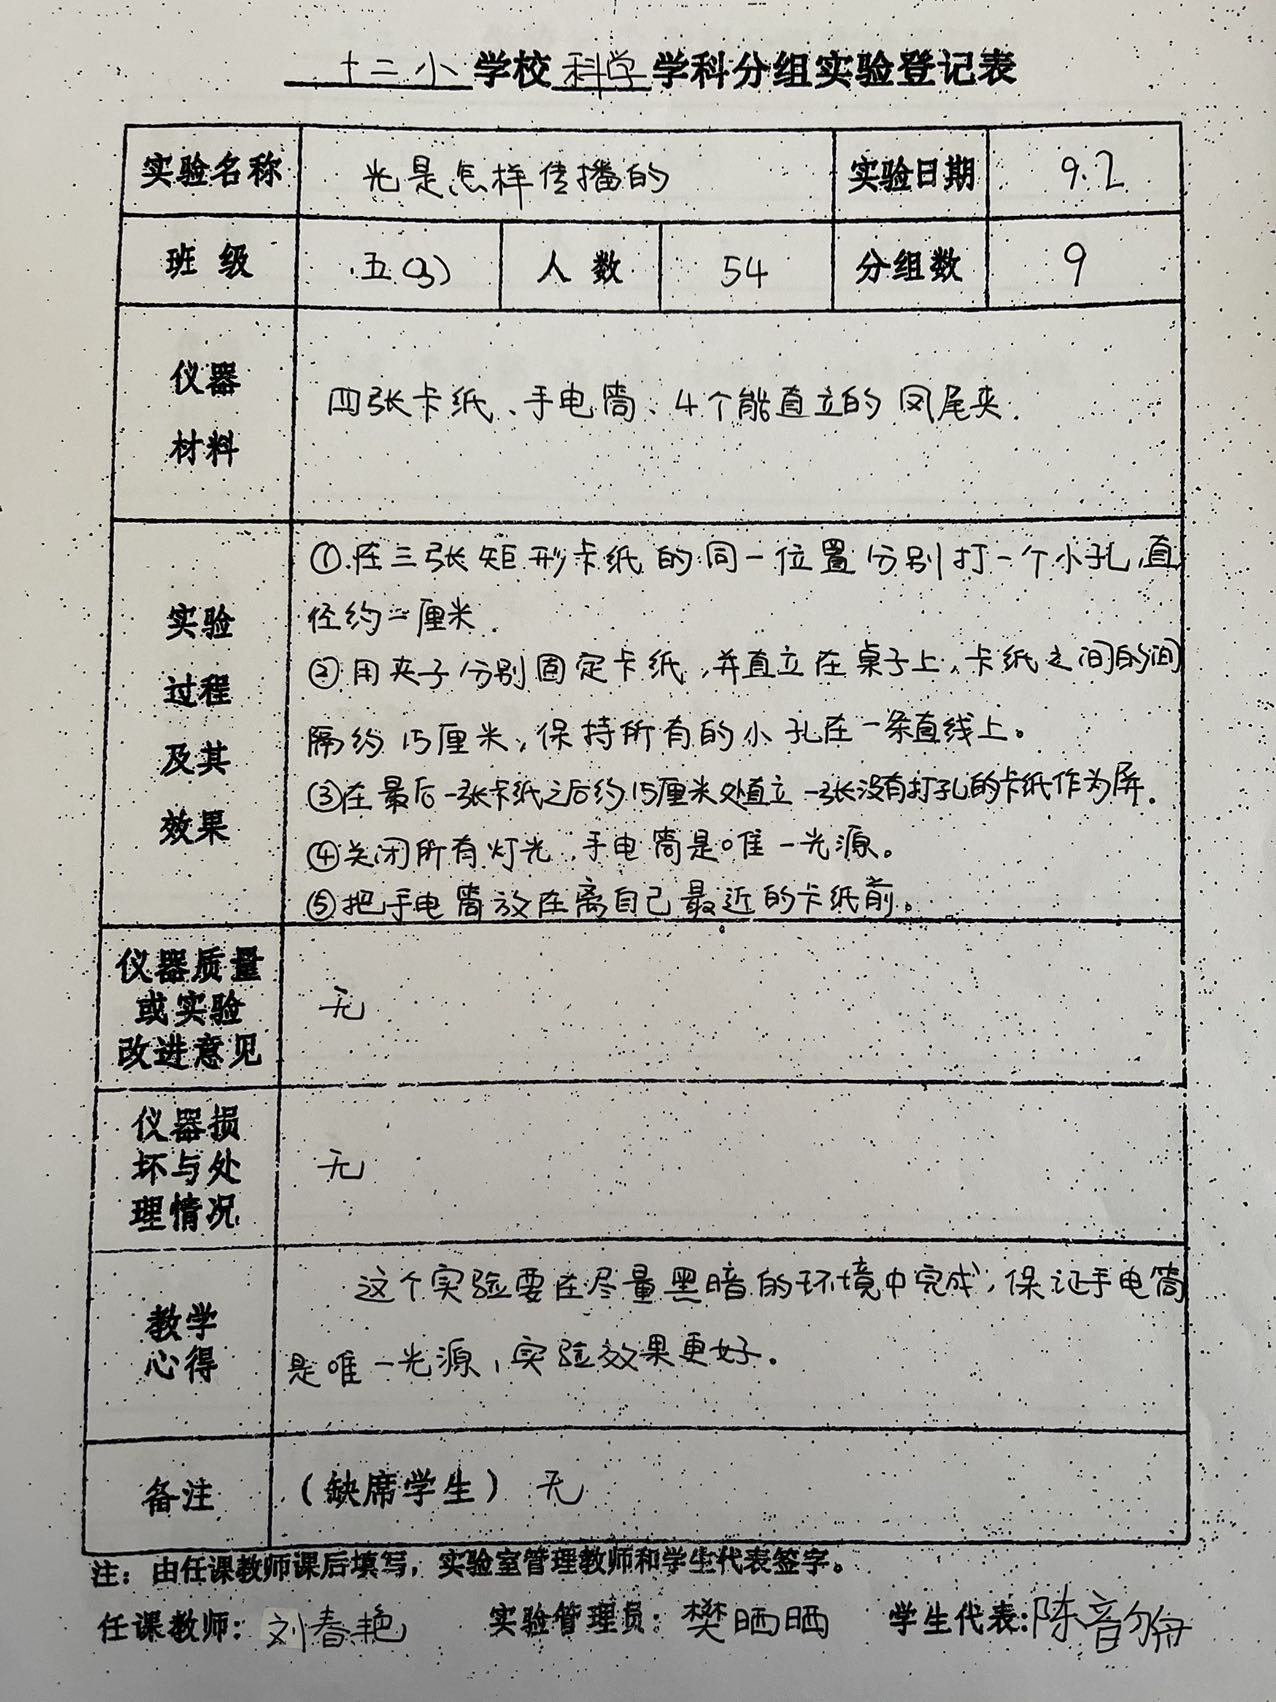 十二小学校科学学科分组实验登记表
实验名称 光是怎样传播的 实验日期 9.2
班级 五(3) 人数 54 分组数 9
仪器
材料
四张卡纸、手电筒、4个能直立的凤尾夹.
实验
过程
及其
效果
①.在三张矩形卡纸的同一位置分别打一个小孔,直
径约一厘米.
②用夹子分别固定卡纸,并直立在桌子上,卡纸之间的间
隔约15厘米,保持所有的小孔在一条直线上。
③在最后一张卡纸之后约15厘米处直立一张没有打孔的卡纸作为屏.
④关闭所有灯光,手电筒是唯一光源。
⑤把手电筒放在离自己最近的卡纸前。
仪器质量
或实验
改进意见
无
仪器损
坏与处
理情况
无
教学
心得
这个实验要在尽量黑暗的环境中完成,保证手电筒
是唯一光源,实验效果更好。
备注 (缺席学生) 无
注:由任课教师课后填写,实验室管理教师和学生代表签字。
任课教师:刘春艳 实验管理员:樊晒晒 学生代表:陈音